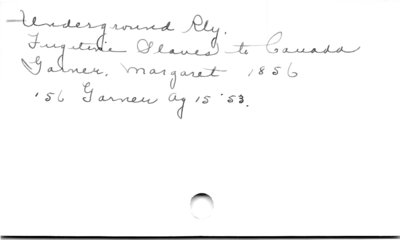 Underground Rly.
Fugitive Slaves to Canada
Garner, Margaret 1856
'56 Garner Ag 15 '53.